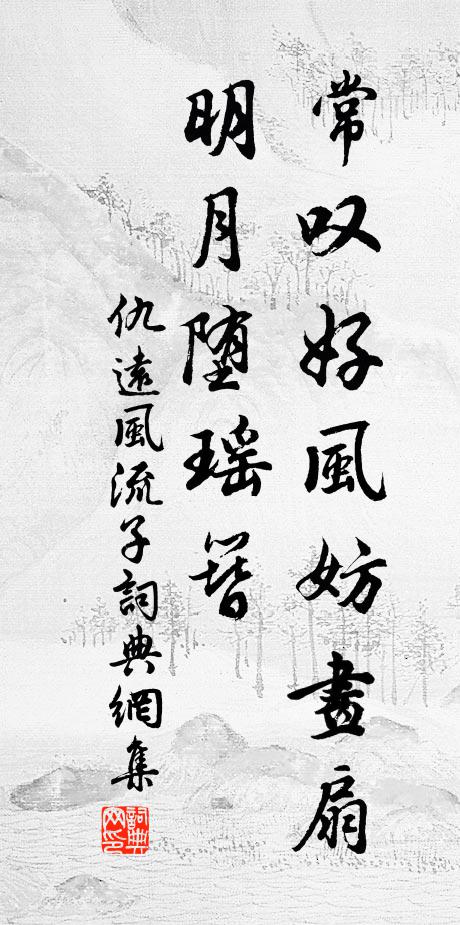 常叹好風妨畫扇
明月堕瑶簪
仇遠風流子詞典網集
詞典网印